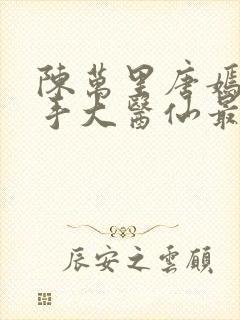 陳萬里唐嫣
手大醫仙最
辰安之雲顧